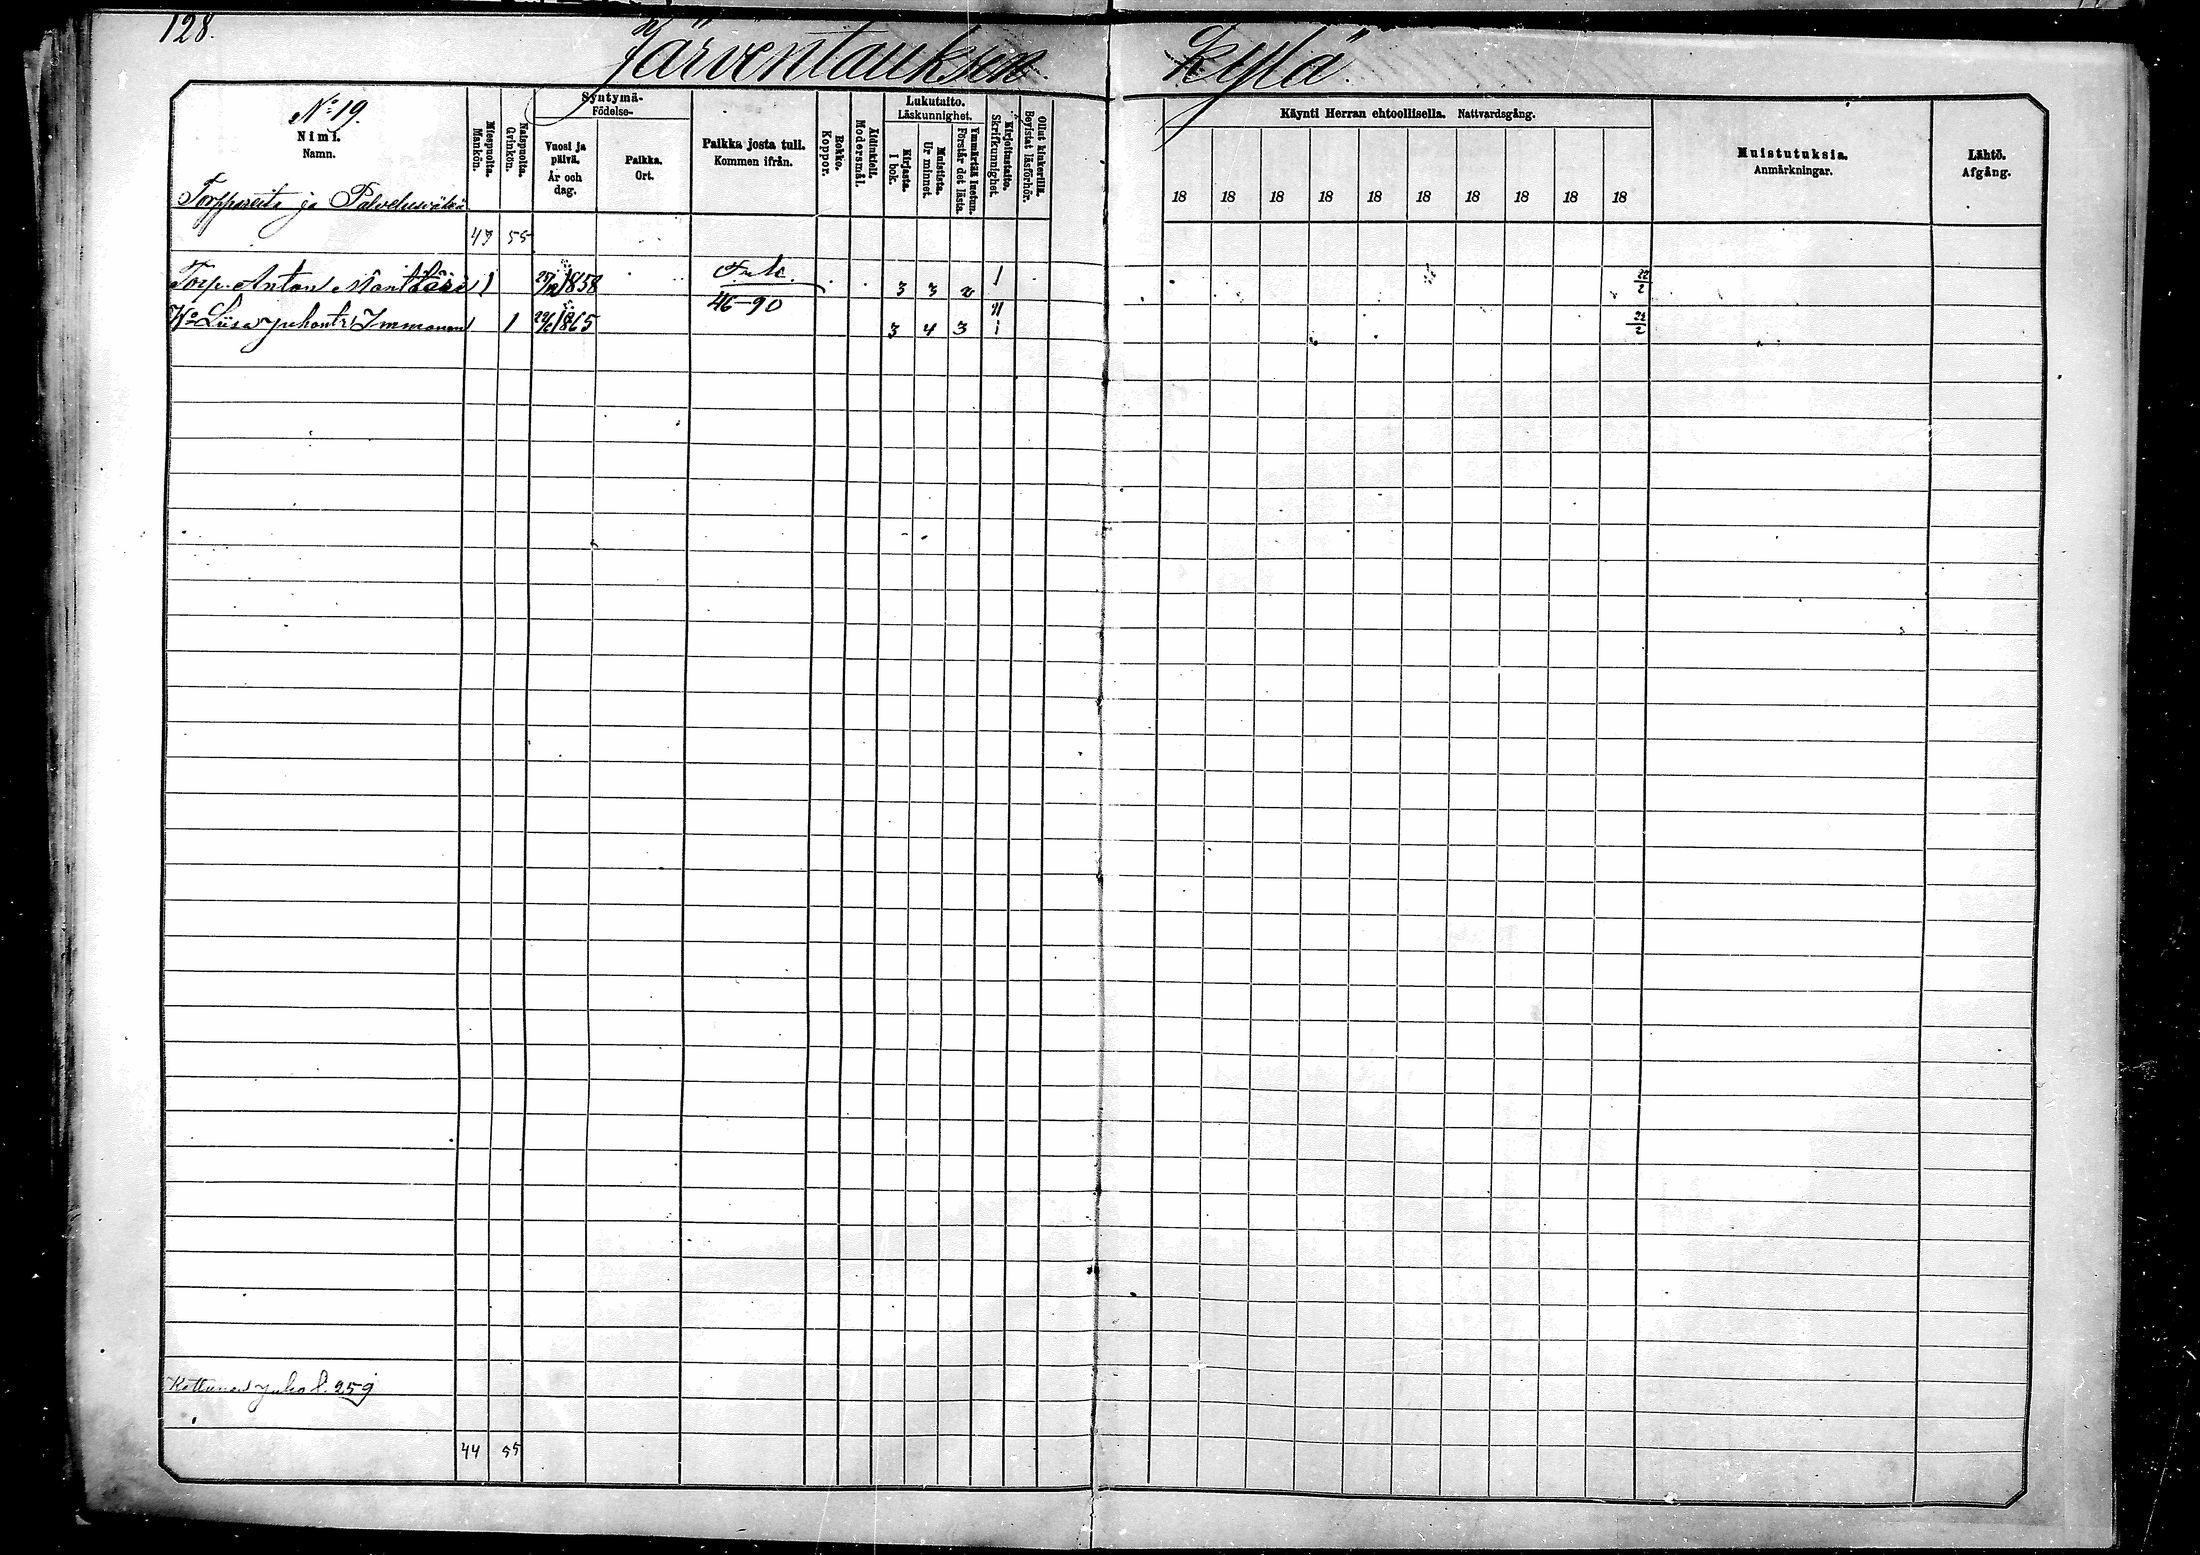 128.
Järventauksen Kylä
No 19.
Nimi.
Namn.
Miespuolia.
Mankön.
Naispuolia.
Qvinkön.
Syntymä-
Födelse-
Vuosi ja päivä.
År och dag.
Paikka.
Ort.
Paikka josta tuli.
Kommen ifrån.
Rokko.
Koppor.
Äidinkieli.
Modersmål.
Lukutaito.
Läskunnighet.
Kirjasta.
I bok.
Muistista.
Ur minnet.
Ymmärtää luetun.
Förstår det lästa.
Kirjoitustaito.
Skrifkunnighet.
Ollut kinkerillä.
Bevistat läsförhör.
Käynti Herran ehtoollisella. Nattvardsgång.
18 18 18 18 18 18 18 18 18 18
Muistutuksia.
Anmärkningar.
Lähtö.
Afgång.
Torppareita ja Palvelusväkeä
43 55
Torp. Anton 1 1858 3 3 2 1 22/2
46-90
Wo Liisa Juhontr. Immonen 1 1865 3 4 3 1 22/2
Kettunen Juho l. 259
44 55